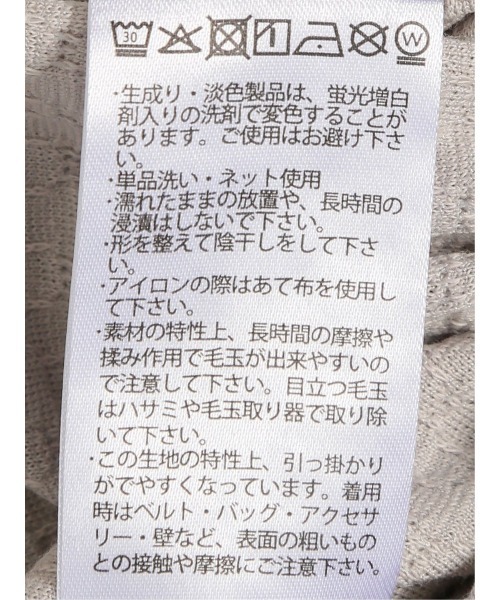 30 W
・生成り・淡色製品は、蛍光増白
剤入りの洗剤で変色することが
あります。ご使用はお避け下さ
い。
・単品洗い・ネット使用
・濡れたままの放置や、長時間の
浸漬はしないで下さい。
・形を整えて陰干しをして下さ
い。
・アイロンの際はあて布を使用し
て下さい。
・素材の特性上、長時間の摩擦や
揉み作用で毛玉が出来やすいの
で注意して下さい。目立つ毛玉
はハサミや毛玉取り器で取り除
いて下さい。
・この生地の特性上、引っ掛かり
がでやすくなっています。着用
時はベルト・バッグ・アクセサ
リー・壁など、表面の粗いもの
との接触や摩擦にご注意下さい。